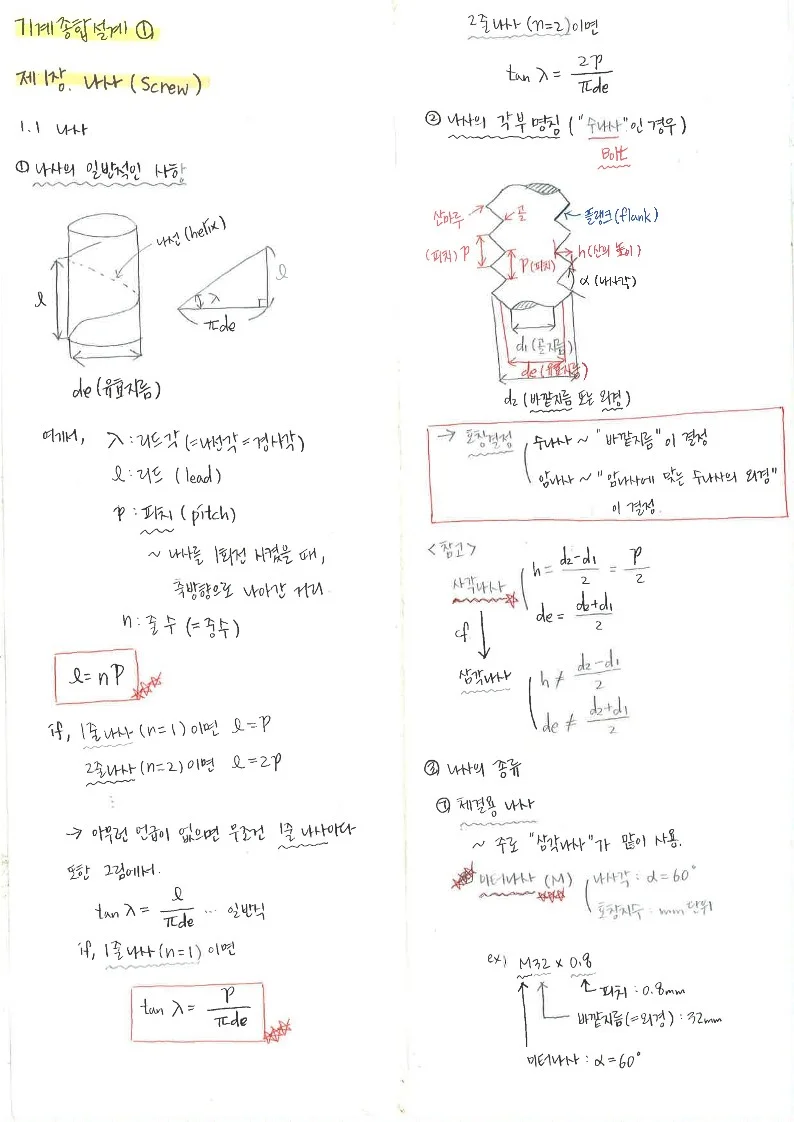 기계종합설계 ①
제 1장. 나사 (Screw)
1.1 나사
① 나사의 일반적인 사항
나선 (helix)
l
λ
l
πde
de (유효지름)
여기서, λ : 리드각 (=나선각 = 경사각)
l : 리드 (lead)
p : 피치 (pitch)
~ 나사를 1회전 시켰을 때,
축방향으로 나아간 거리
n : 줄 수 (= 중수)
l = np
if, 1줄나사 (n=1) 이면 l = p
2줄나사 (n=2) 이면 l = 2p
⋮
→ 아무런 언급이 없으면 무조건 1줄 나사이다
또한 그림에서.
tan λ = l / πde ... 일반식
if, 1줄나사 (n=1) 이면
tan λ = p / πde
2줄나사 (n=2) 이면
tan λ = 2p / πde
② 나사의 각부명칭 ("수나사"인 경우)
Bolt
산마루
골
플랭크 (flank)
(피치) p
p (피치)
h (산의 높이)
α (나사각)
d1 (골지름)
de (유효지름)
d2 (바깥지름 또는 외경)
→ 호칭결정
수나사 ~ "바깥지름"이 결정
암나사 ~ "암나사에 맞는 수나사의 외경"
이 결정.
<참고>
사각나사
h = d2-d1 / 2 = p / 2
de = d2+d1 / 2
cf
삼각나사
h ≠ d2-d1 / 2
de ≠ d2+d1 / 2
③ 나사의 종류
㉠ 체결용 나사
~ 주로 "삼각나사"가 많이 사용.
미터나사 (M)
나사각 : α = 60°
호칭치수 : mm 단위
ex) M32 x 0.8
피치 : 0.8mm
바깥지름(=외경) : 32mm
미터나사 : α = 60°